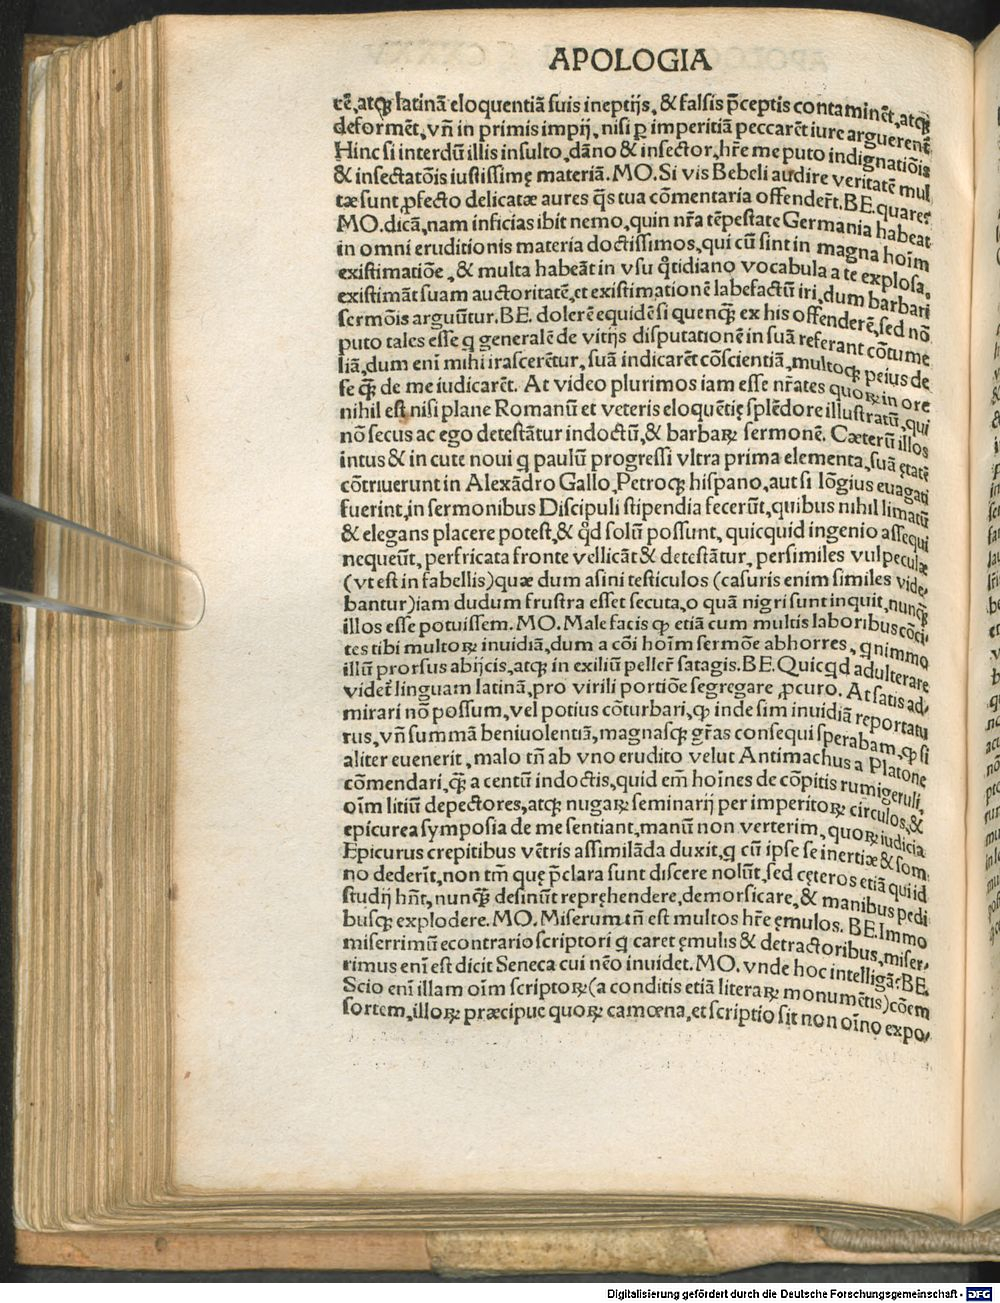 APOLOGIA
cē, atq₃ latinā eloquentiā suis ineptijs, & falsis p̄ceptis contaminēt, atq₃
deformēt, vn̄ in primis impij, nisi ꝑ imperitiā peccarēt iure arguerent̄
Hinc si interdū illis insulto, dāno & insector, hr̄e me puto indignatiōis
& insectatōis iustissimę materiā. MO. Si vis Bebeli audire veritatē mul
tæ sunt ꝓfecto delicatæ aures q̄s tua cōmentaria offender̄t. BE. quare?
MO. dicā, nam inficias ibit nemo, quin nr̄a tēpestate Germania habeat
in omni eruditionis materia doctissimos, qui cū sint in magna hoīm
existimatiōe, & multa habeāt in vsu q̊tidiano vocabula a te explosa,
existimāt suam auctoritatē, et existimationē labefactū iri, dum barbari
sermōis arguūtur. BE. dolerē equidē si quenq̄₃ ex his offenderē, sed nō
puto tales esse q generalē de vitijs disputationē in suā referant cōtume
liā, dum enī mihi irascerētur, suā indicarēt cōscientiā, multoq₃ peius de
se q̄₃ de me iudicarēt. At video plurimos iam esse nr̄ates quoꝝ in ore
nihil est nisi plane Romanū et veteris eloquētię splēdore illustratū, qui
nō secus ac ego detestātur indoctū, & barbaꝝ sermonē. Cæterū illos
intus & in cute noui q paulū progressi vltra prima elementa, suā ętatē
cōtriuerunt in Alexādro Gallo, Petroq₃ hispano, aut si lōgius euagati
fuerint, in sermonibus Discipuli stipendia fecerūt, quibus nihil limatū
& elegans placere potest, & q̊d solū possunt, quicquid ingenio assequi
nequeūt, perfricata fronte vellicāt & detestātur, persimiles vulpeculæ
(vt est in fabellis) quæ dum asini testiculos (casuris enim similes vide⸗
bantur) iam dudum frustra esset secuta, o quā nigri sunt inquit, nunq̄₃
illos esse potuissem. MO. Male facis ꝙ etiā cum multis laboribus cōci⸗
tes tibi multoꝝ inuidiā, dum a cōi hoīm sermōe abhorres, qnimmo
illū prorsus abijcis, atq₃ in exiliū peller̄ satagis. BE. Quicqd adulterare
videt̄ linguam latinā, pro virili portiōe segregare ꝓcuro. At satis ad⸗
mirari nō possum, vel potius cōturbari, ꝙ inde sim inuidiā reportatu
rus, vn̄ summā beniuolentiā, magnasq₃ gr̄as consequi sperabam, ꝙ si
aliter euenerit, malo tn̄ ab vno erudito velut Antimachus a Platone
cōmendari, q̄₃ a centū indoctis, quid em̄ hoīnes de cōpitis rumigeruli,
oīm litiū depectores, atq₃ nugaꝝ seminarij per imperitoꝝ circulos, &
epicurea symposia de me sentiant, manū non verterim, quoꝝ iudicia
Epicurus crepitibus vētris assimilāda duxit, q cū ipse se inertiæ & som
no dederīt, non tm̄ quę p̄clara sunt discere nolūt, sed cęteros etiā qui id
studij hn̄t, nunq̄₃ desinūt repręhendere, demorsicare, & manibus pedi
busq₃ explodere. MO. Miserum tn̄ est multos hr̄e ęmulos. BE. Immo
miserrimū econtrario scriptori q caret ęmulis & detractoribus, miser⸗
rimus enī est dicit Seneca cui nēo inuidet. MO. vnde hoc intelligā? BE.
Scio enī illam oīm scriptoꝝ (a conditis etiā literaꝝ monumētis) cōem
sortem, illoꝝ præcipue quoꝝ camœna, et scriptio sit non oīno expo⸗
Digitalisierung gefördert durch die Deutsche Forschungsgemeinschaft - DFG